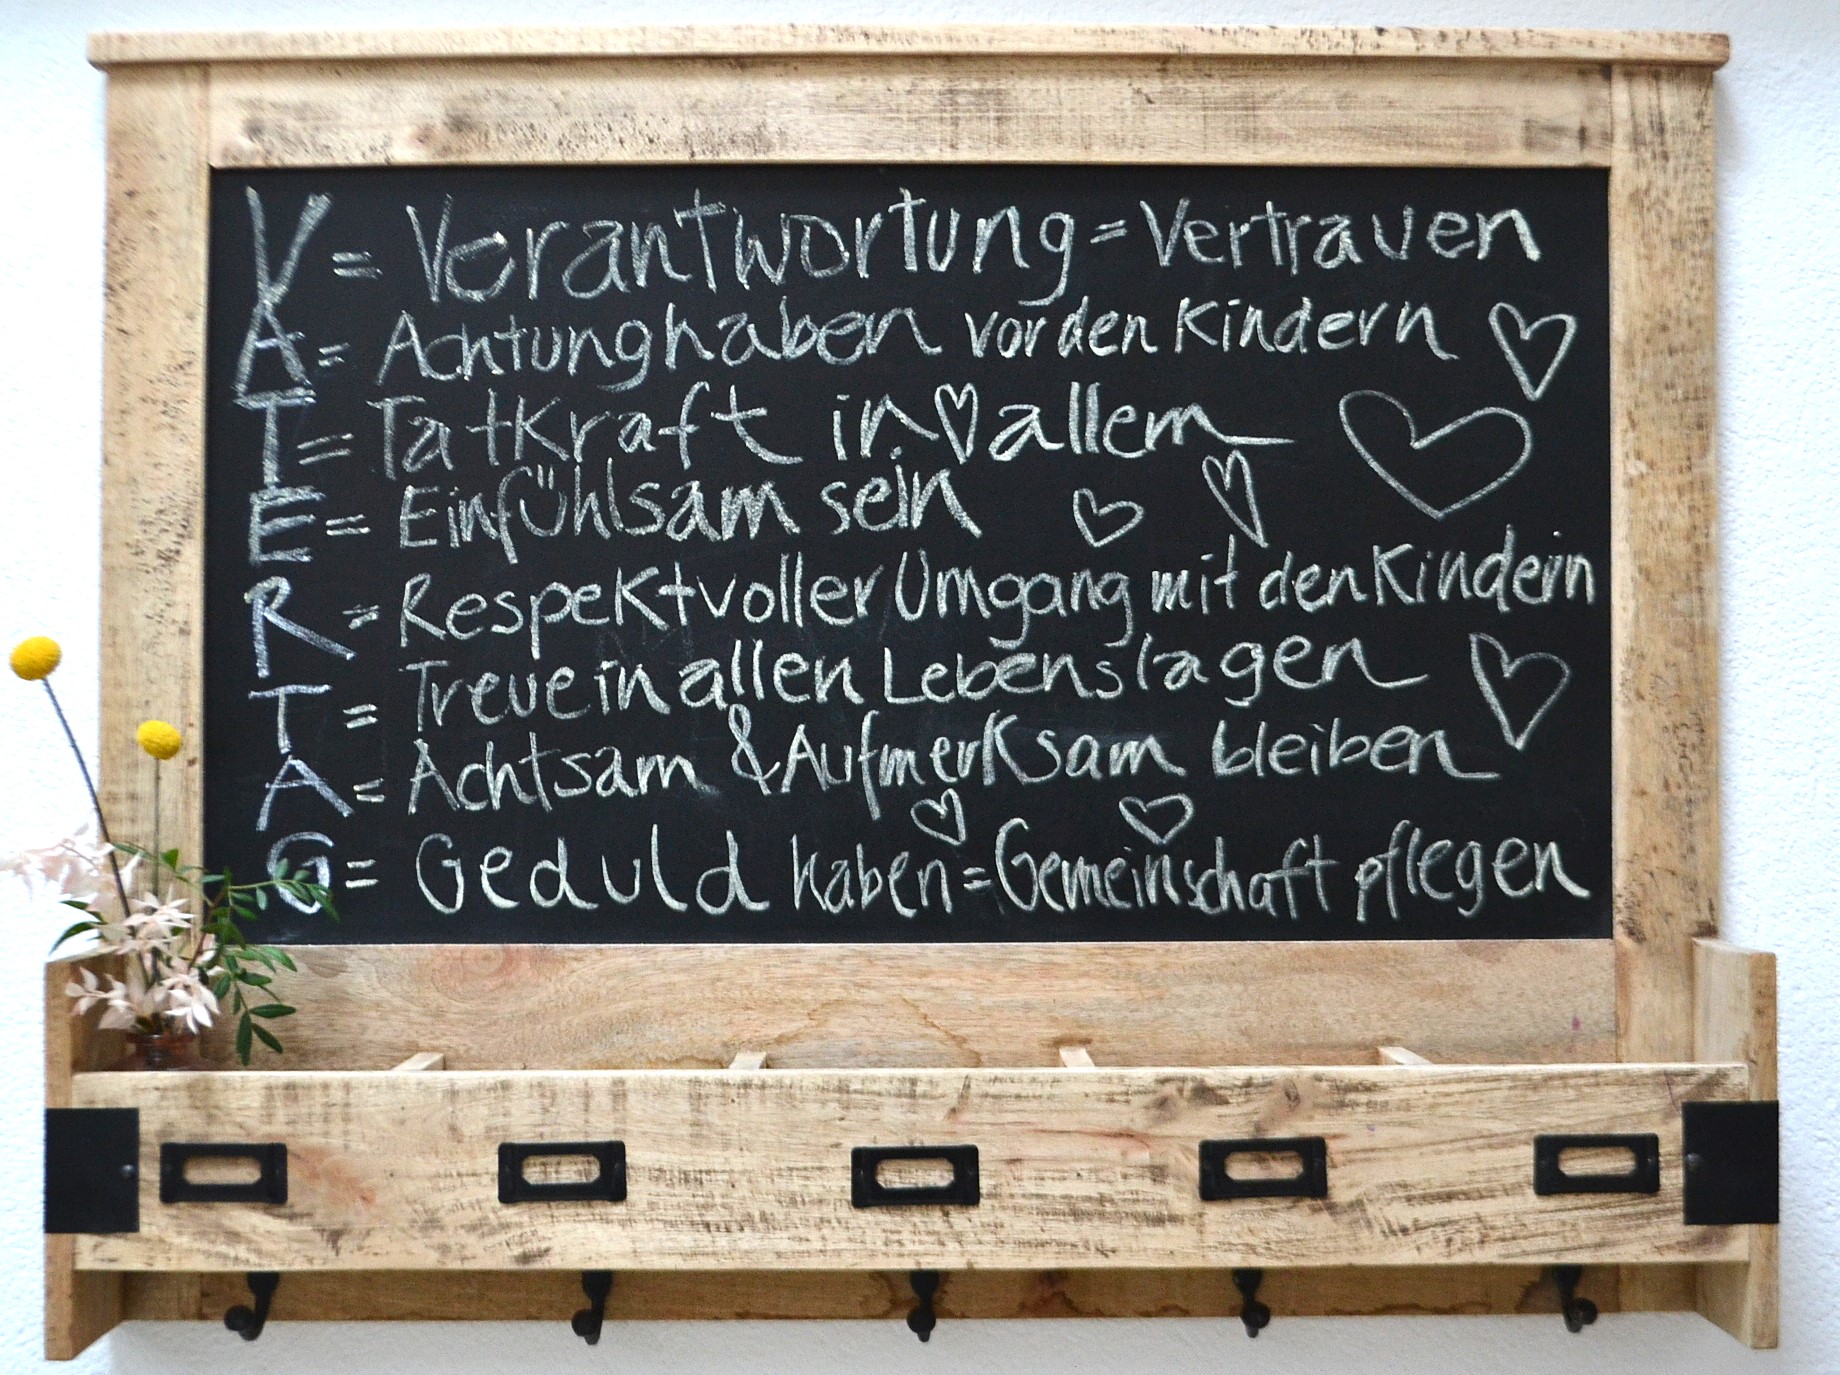 V = Verantwortung = Vertrauen
A = Achtung haben vor den Kindern
T = Tatkraft in allem
E = Einfühlsam sein
R = Respektvoller Umgang mit den Kindern
T = Treue in allen Lebenslagen
A = Achtsam & Aufmerksam bleiben
G = Geduld haben = Gemeinschaft pflegen